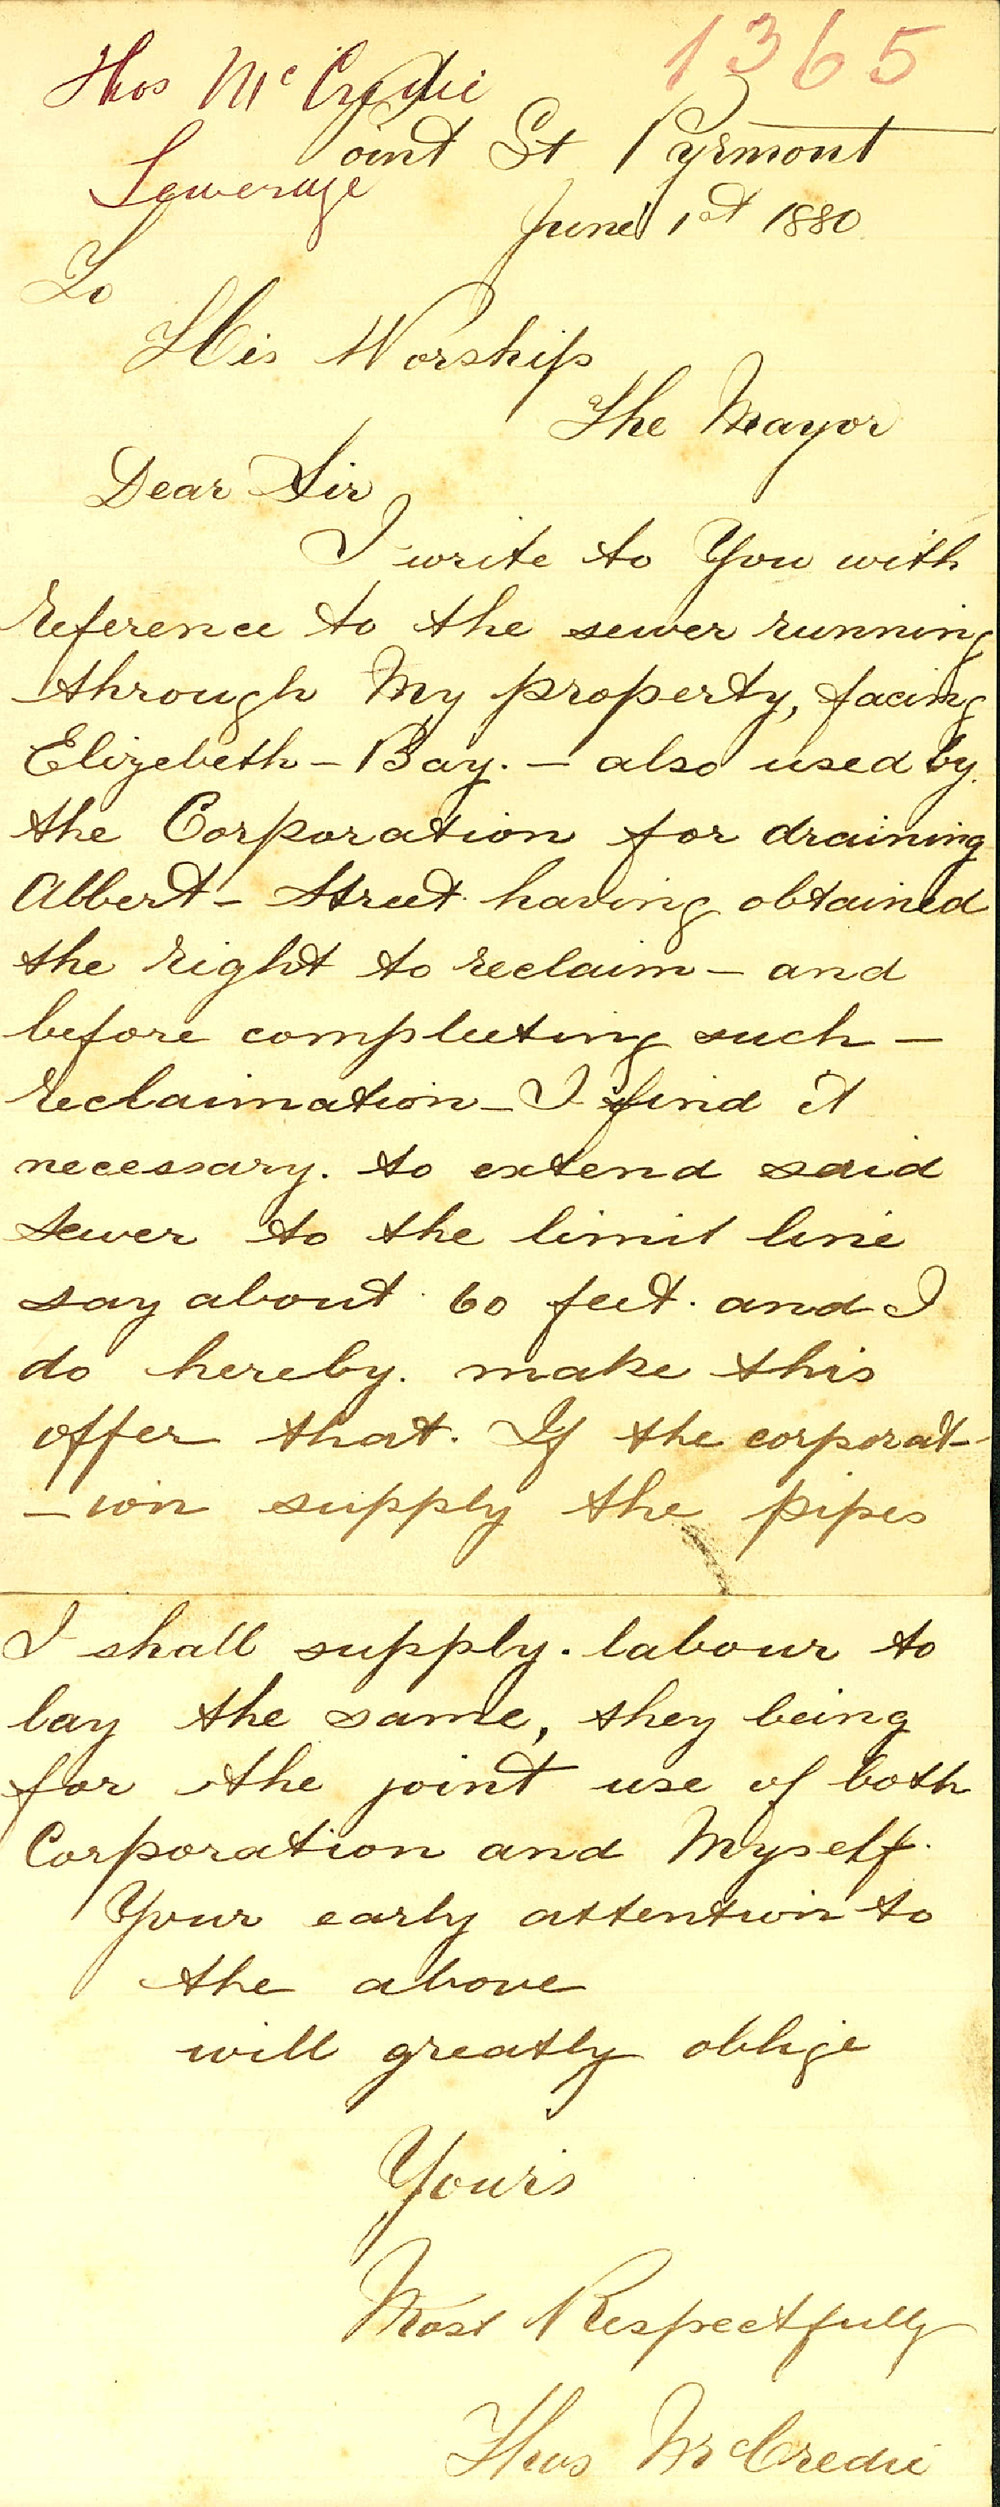 1365
Thos McCredie
Point St Pyrmont
Sewerage
June 1st 1880
To
His Worship
The Mayor
Dear Sir
I write to You with
reference to the sewer running
through My property, facing
Elizebeth - Bay. - also used by
the Corporation for draining
Albert - Street. having obtained
the right to reclaim - and
before compleeting such -
reclaimation - I find it
necessary. to extend said
sewer to the limit line
say about 60 feet. and I
do hereby. make this
offer that. If the corporat-
-ion supply the pipes
I shall supply. labour to
lay the same, they being
for the joint use of both
Corporation and Myself.
Your early attention to
the above
will greatly oblige
Yours
Most Respectfully
Thos McCredie